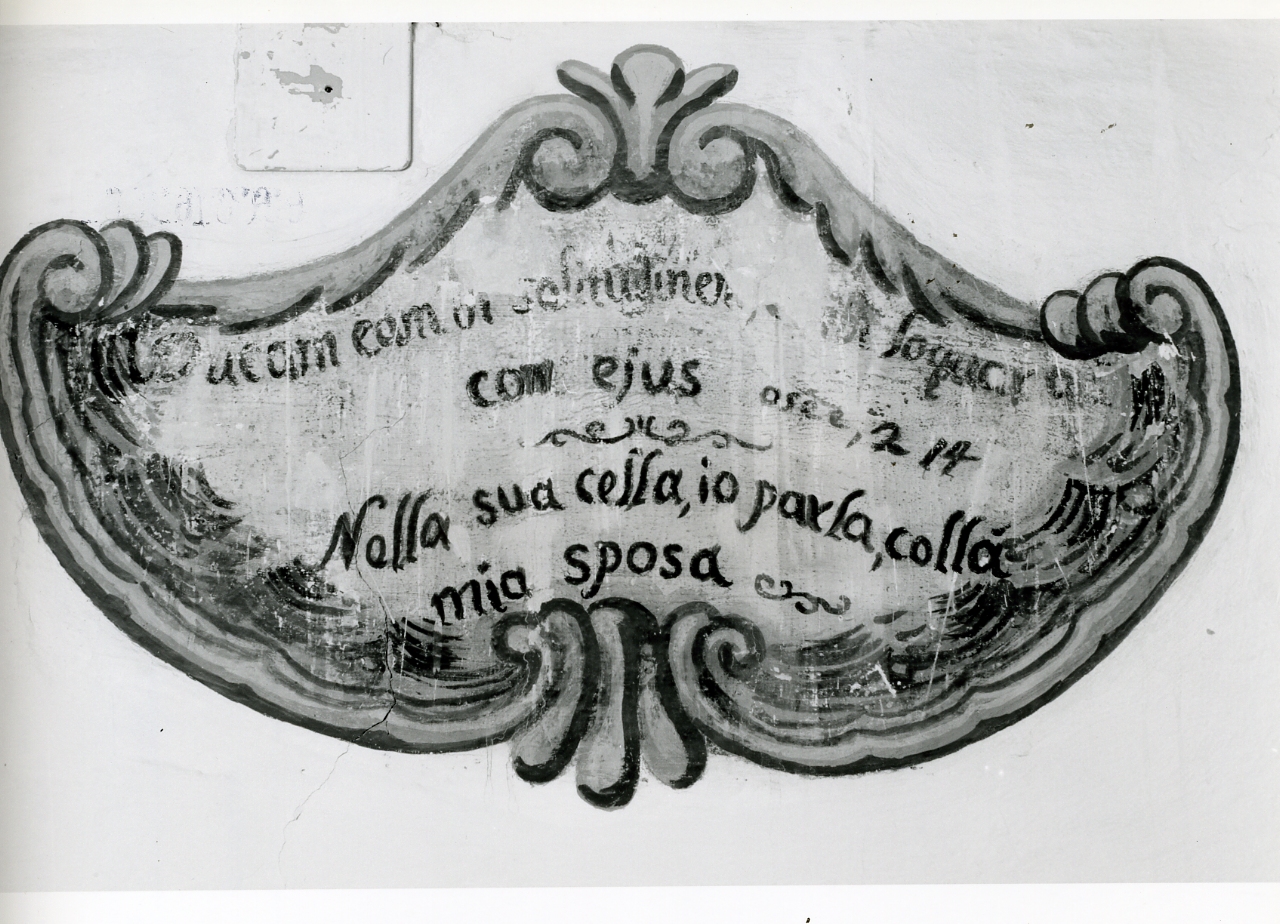 Ducam eam in solitudinem, et loquar
com ejus osee, 2 14
Nella sua cella, io parla, colla
mia sposa